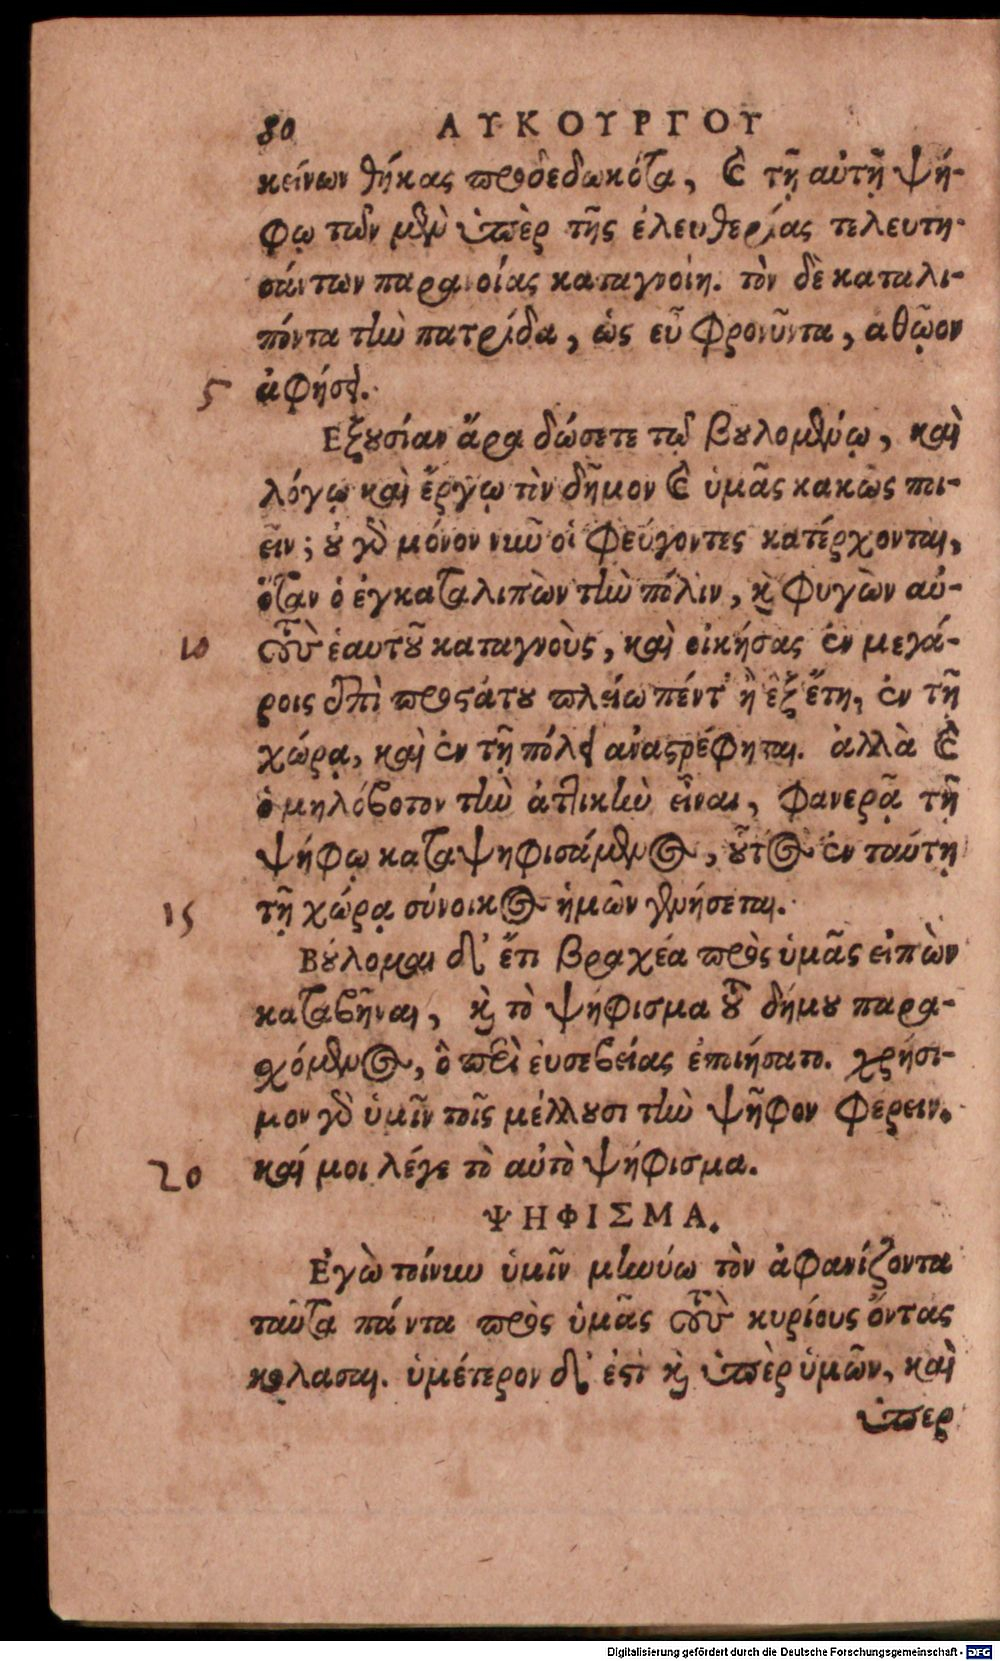 80 ΛΥΚΟΥΡΓΟΥ
κείνων θήκας προδεδωκότα, καὶ τῇ αὐτῇ ψή-
φῳ τῶν μὲν ὑπὲρ τῆς ἐλευθερίας τελευτη-
σάντων παρανοίας καταγνοίη. τὸν δὲ καταλι-
πόντα τὴν πατρίδα, ὡς εὖ φρονοῦντα, ἀθῷον
5 ἀφήσει.
Εξουσίαν ἄρα δώσετε τῷ βουλομένῳ, καὶ
λόγῳ καὶ ἔργῳ τὸν δῆμον καὶ ὑμᾶς κακῶς ποι-
εῖν; οὐ γὰρ μόνον νῦν οἱ φεύγοντες κατέρχονται,
ὅταν ὁ ἐγκαταλιπὼν τὴν πόλιν, καὶ φυγὼν αὐ-
10 τοῦ ἑαυτοῦ καταγνοὺς, καὶ οἰκήσας ἐν μεγά-
ροις ἐπὶ προστάτου πλείω πέντ' ἢ ἓξ ἔτη, ἐν τῇ
χώρᾳ, καὶ ἐν τῇ πόλει ἀναστρέφηται. ἀλλὰ καὶ
ὁ μηλόβοτον τὴν ἀττικὴν εἶναι, φανερᾷ τῇ
ψήφῳ καταψηφισάμενος, οὗτος ἐν ταύτῃ
15 τῇ χώρᾳ σύνοικος ἡμῶν γενήσεται.
Βούλομαι δ' ἔτι βραχέα πρὸς ὑμᾶς εἰπὼν
καταβῆναι, καὶ τὸ ψήφισμα τοῦ δήμου παρα-
χόμενος, ὃ περὶ εὐσεβείας ἐποιήσατο. χρήσι-
μον γὰρ ὑμῖν τοῖς μέλλουσι τὴν ψῆφον φέρειν.
20 καί μοι λέγε τὸ αὐτὸ ψήφισμα.
ΨΗΦΙΣΜΑ.
Εγὼ τοίνυν ὑμῖν μηνύω τὸν ἀφανίζοντα
ταῦτα πάντα πρὸς ὑμᾶς τοὺς κυρίους ὄντας
κολασαι. ὑμέτερον δ' ἐστὶ καὶ ὑπὲρ ὑμῶν, καὶ
ὑπερ
Digitalisierung gefördert durch die Deutsche Forschungsgemeinschaft - DFG